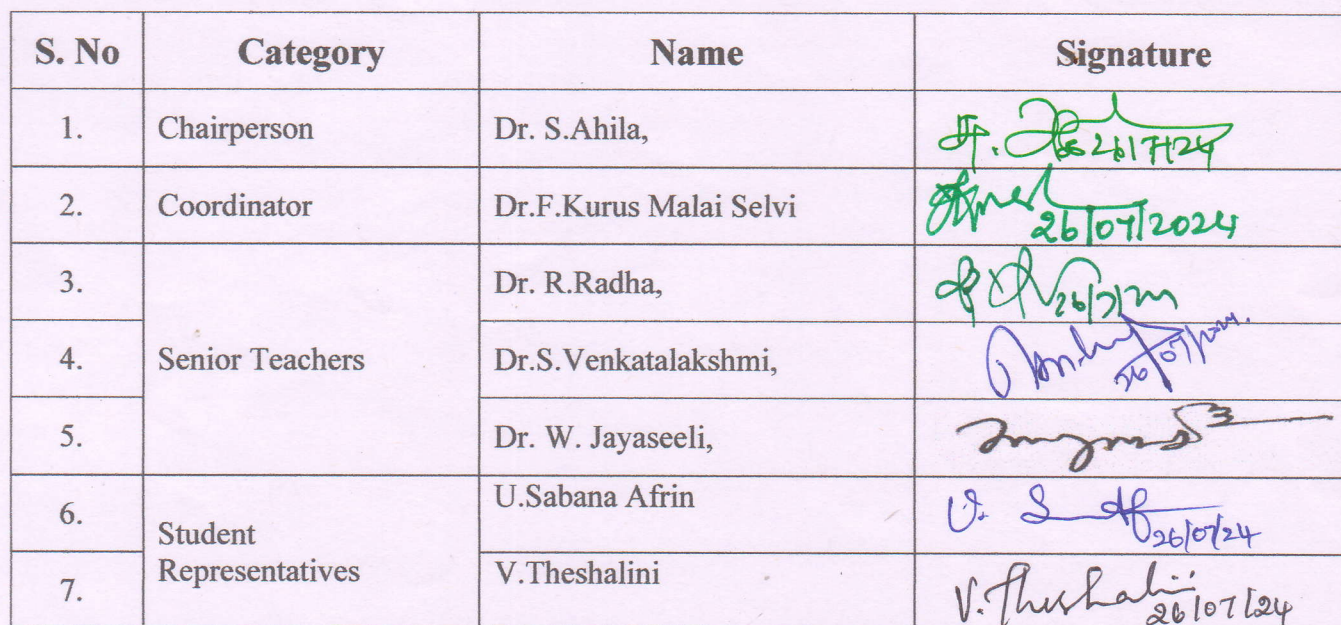 S. No Category Name Signature
1. Chairperson Dr. S.Ahila, 26/7/24
2. Coordinator Dr.F.Kurus Malai Selvi 26/07/2024
3. Dr. R.Radha, 26/7/24
4. Senior Teachers Dr.S.Venkatalakshmi, 26/07/2024
5. Dr. W. Jayaseeli,
6. U.Sabana Afrin 26/07/24
Student
Representatives
7. V.Theshalini V.Theshalini 26/07/24